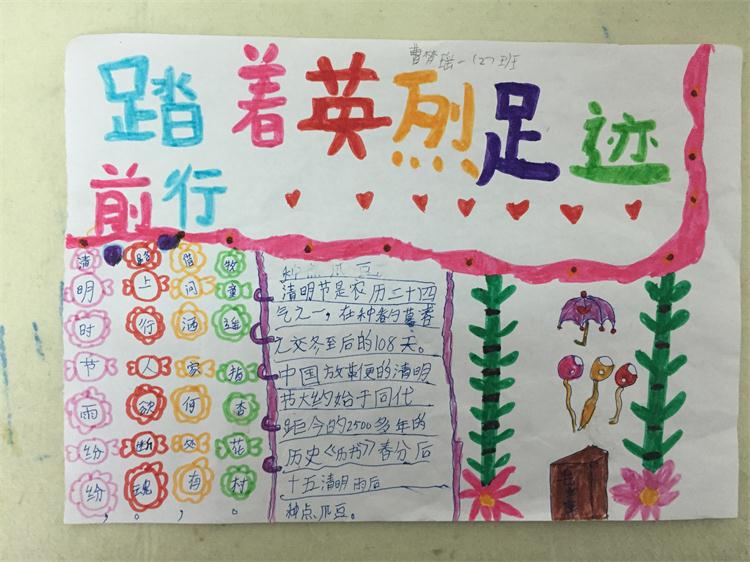 曹梦瑶一(2)班
踏着英烈足迹
前行
清明时节雨纷纷，
路上行人欲断魂。
借问洒家何处有，
牧童遥指杏花村。
种点瓜豆
清明节是农历二十四
气之一，在种春与暮春
之交冬至后的108天。
中国放革便的清明
节大约始于同代
距今的2500多年的
历史《历书》春分后
十五清明雨后
种点瓜豆。